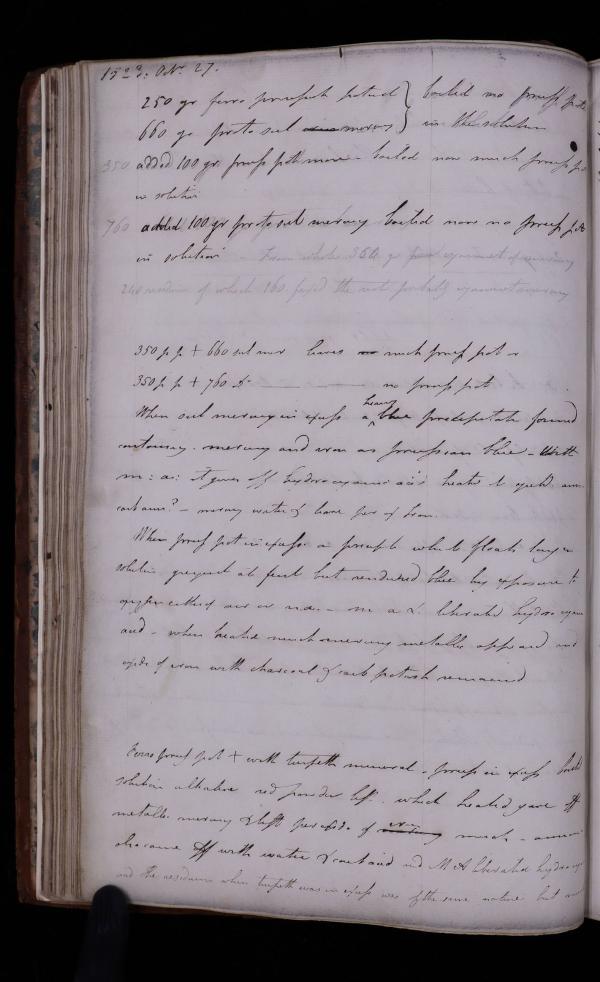 1823. Oct. 27.
250 gr ferro prussiate potash } boiled no pruss pot
660 gr proto sul mercury } in the solution
350 added 100 grs pruss poth more - boiled now much pruss po
in solution
760 added 100 gr proto sul mercury boiled now no pruss pot
in solution - From whole 350 gr
240 residuum of which 160 the rest probably cyanuret mercury
350 p p + 660 sul mer leaves much pruss pot
350 p p + 760 do no pruss pot
When sul mercury in excess a heavy blue precipitate formed
containing mercury and iron as prussian blue - With
m: a: it gives off hydrocyanic acid heated it yields am
carb am? - mercury water & leave per ox iron
When pruss pot in excess a precipitate white floats long in
solution greyish at first but rendered blue by exposure to
oxygen either of air or - m a & liberates hydro cyanic
acid - when heated much mercury metallic appeared and
oxide of iron with charcoal & carb potash remained
Ferro pruss pot + with turpeth mineral - pruss in excess boiled
solution alkaline red powder left which heated gave off
metallic mercury & left peroxide of iron much - ammonia
also came off with water & carb acid and M A liberated hydrocy
and the residuum when turpeth was in excess was of the same nature but